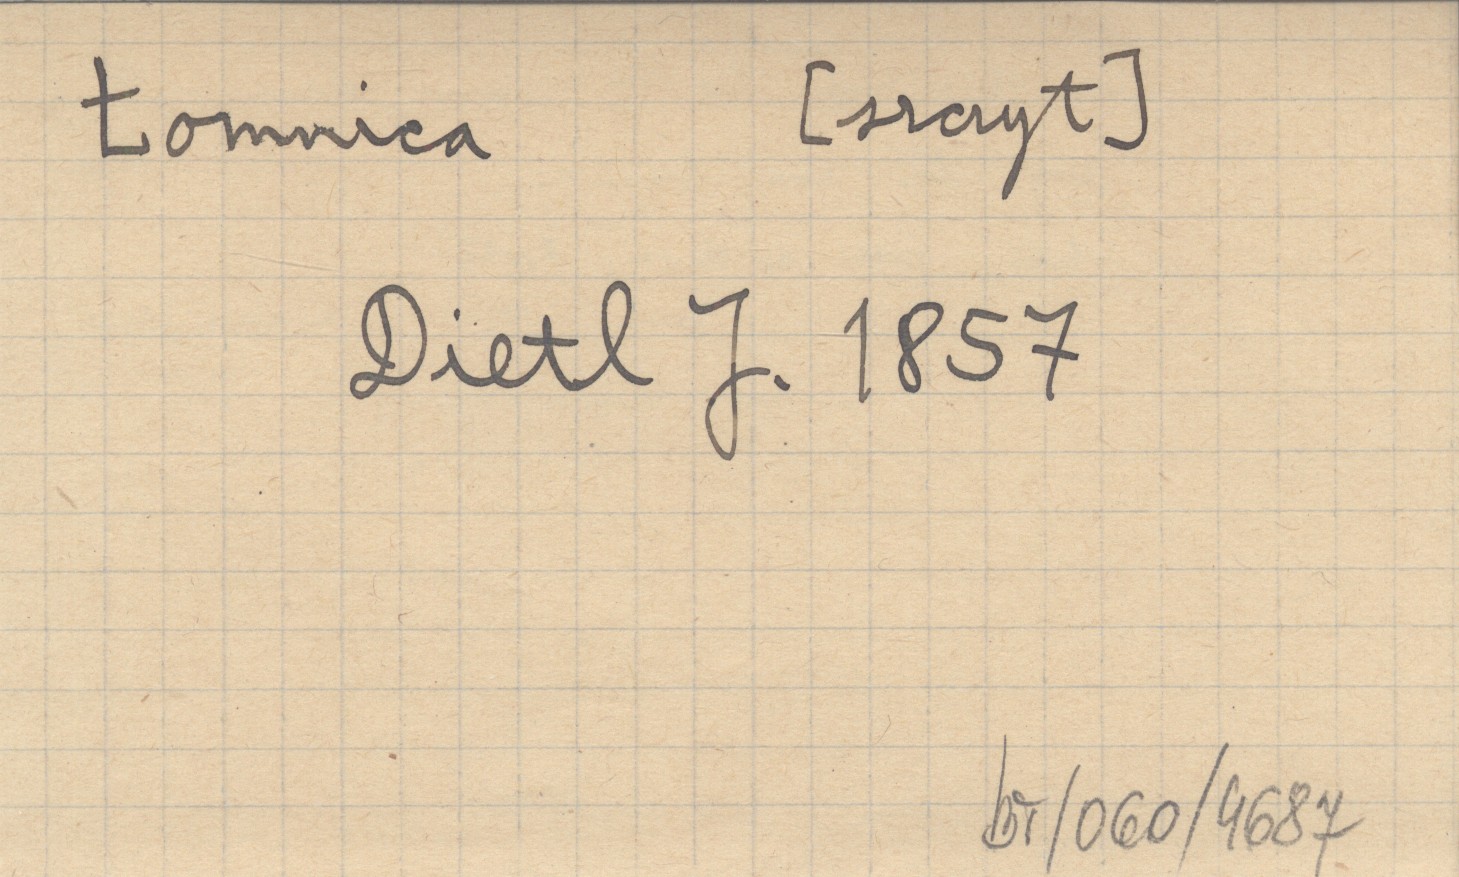 Łomnica [szczyt]
Dietl J. 1857
br/060/4687